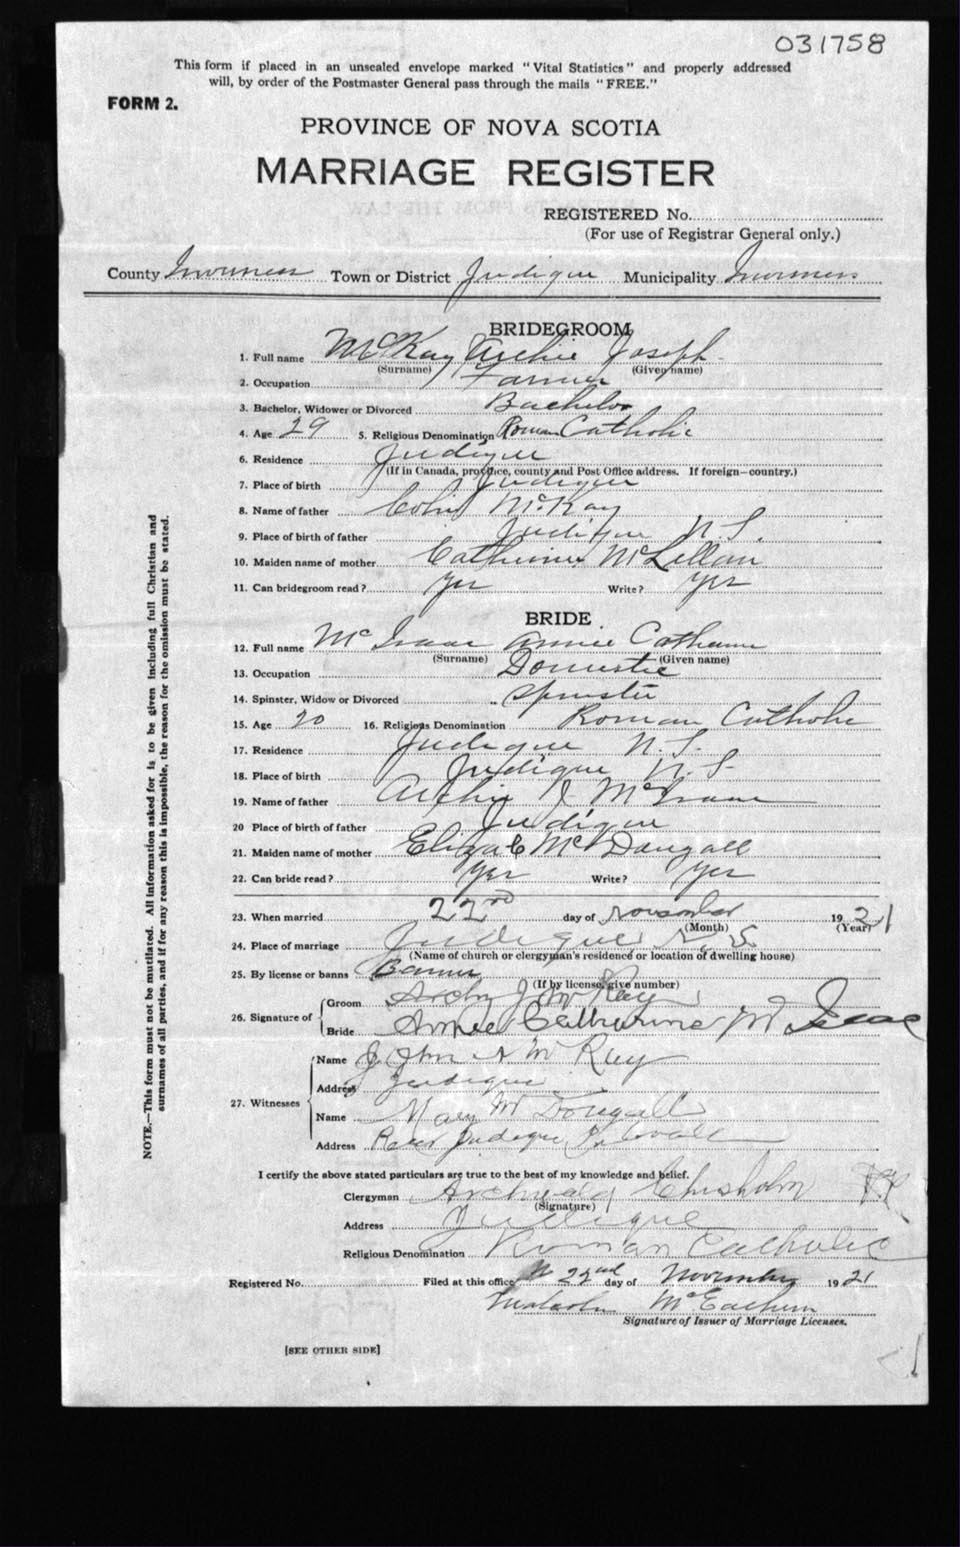 031758
This form if placed in an unsealed envelope marked "Vital Statistics" and properly addressed
will, by order of the Postmaster General pass through the mails "FREE."
FORM 2.
PROVINCE OF NOVA SCOTIA
MARRIAGE REGISTER
REGISTERED No.
(For use of Registrar General only.)
County Inverness Town or District Judique Municipality Inverness
BRIDEGROOM
1. Full name McKay Archie Joseph
(Surname) (Given name)
2. Occupation Farmer
3. Bachelor, Widower or Divorced Bachelor
4. Age 29 5. Religious Denomination Roman Catholic
6. Residence Judique
(If in Canada, province, county and Post Office address. If foreign—country.)
7. Place of birth Judique
8. Name of father Colin McKay
9. Place of birth of father Judique N.S.
10. Maiden name of mother Catherine McLellan
11. Can bridegroom read? Yes Write? Yes
BRIDE
12. Full name McIsaac Annie Catherine
(Surname) (Given name)
13. Occupation Domestic
14. Spinster, Widow or Divorced Spinster
15. Age 20 16. Religious Denomination Roman Catholic
17. Residence Judique N.S.
18. Place of birth Judique N.S.
19. Name of father Archie McIsaac
20 Place of birth of father Judique
21. Maiden name of mother Eliza McDougall
22. Can bride read? Yes Write? Yes
23. When married 22nd day of November 1921
(Month) (Year)
24. Place of marriage Judique N.S.
(Name of church or clergyman's residence or location of dwelling house)
25. By license or banns Banns
(If by license, give number)
26. Signature of Groom Archy J McKay
Bride Annie Catherine McIsaac
27. Witnesses
Name John A McKay
Address Judique
Name Mary McDougall
Address Rear Judique
I certify the above stated particulars are true to the best of my knowledge and belief.
Clergyman Archibald Chisholm P.P.
(Signature)
Address Judique
Religious Denomination Roman Catholic
Registered No. Filed at this office 22nd day of November 1921
Malcolm McEachern
Signature of Issuer of Marriage Licenses.
[SEE OTHER SIDE]
NOTE.—This form must not be mutilated. All information asked for is to be given including full Christian and
surnames of all parties, and if for any reason this is impossible, the reason for the omission must be stated.